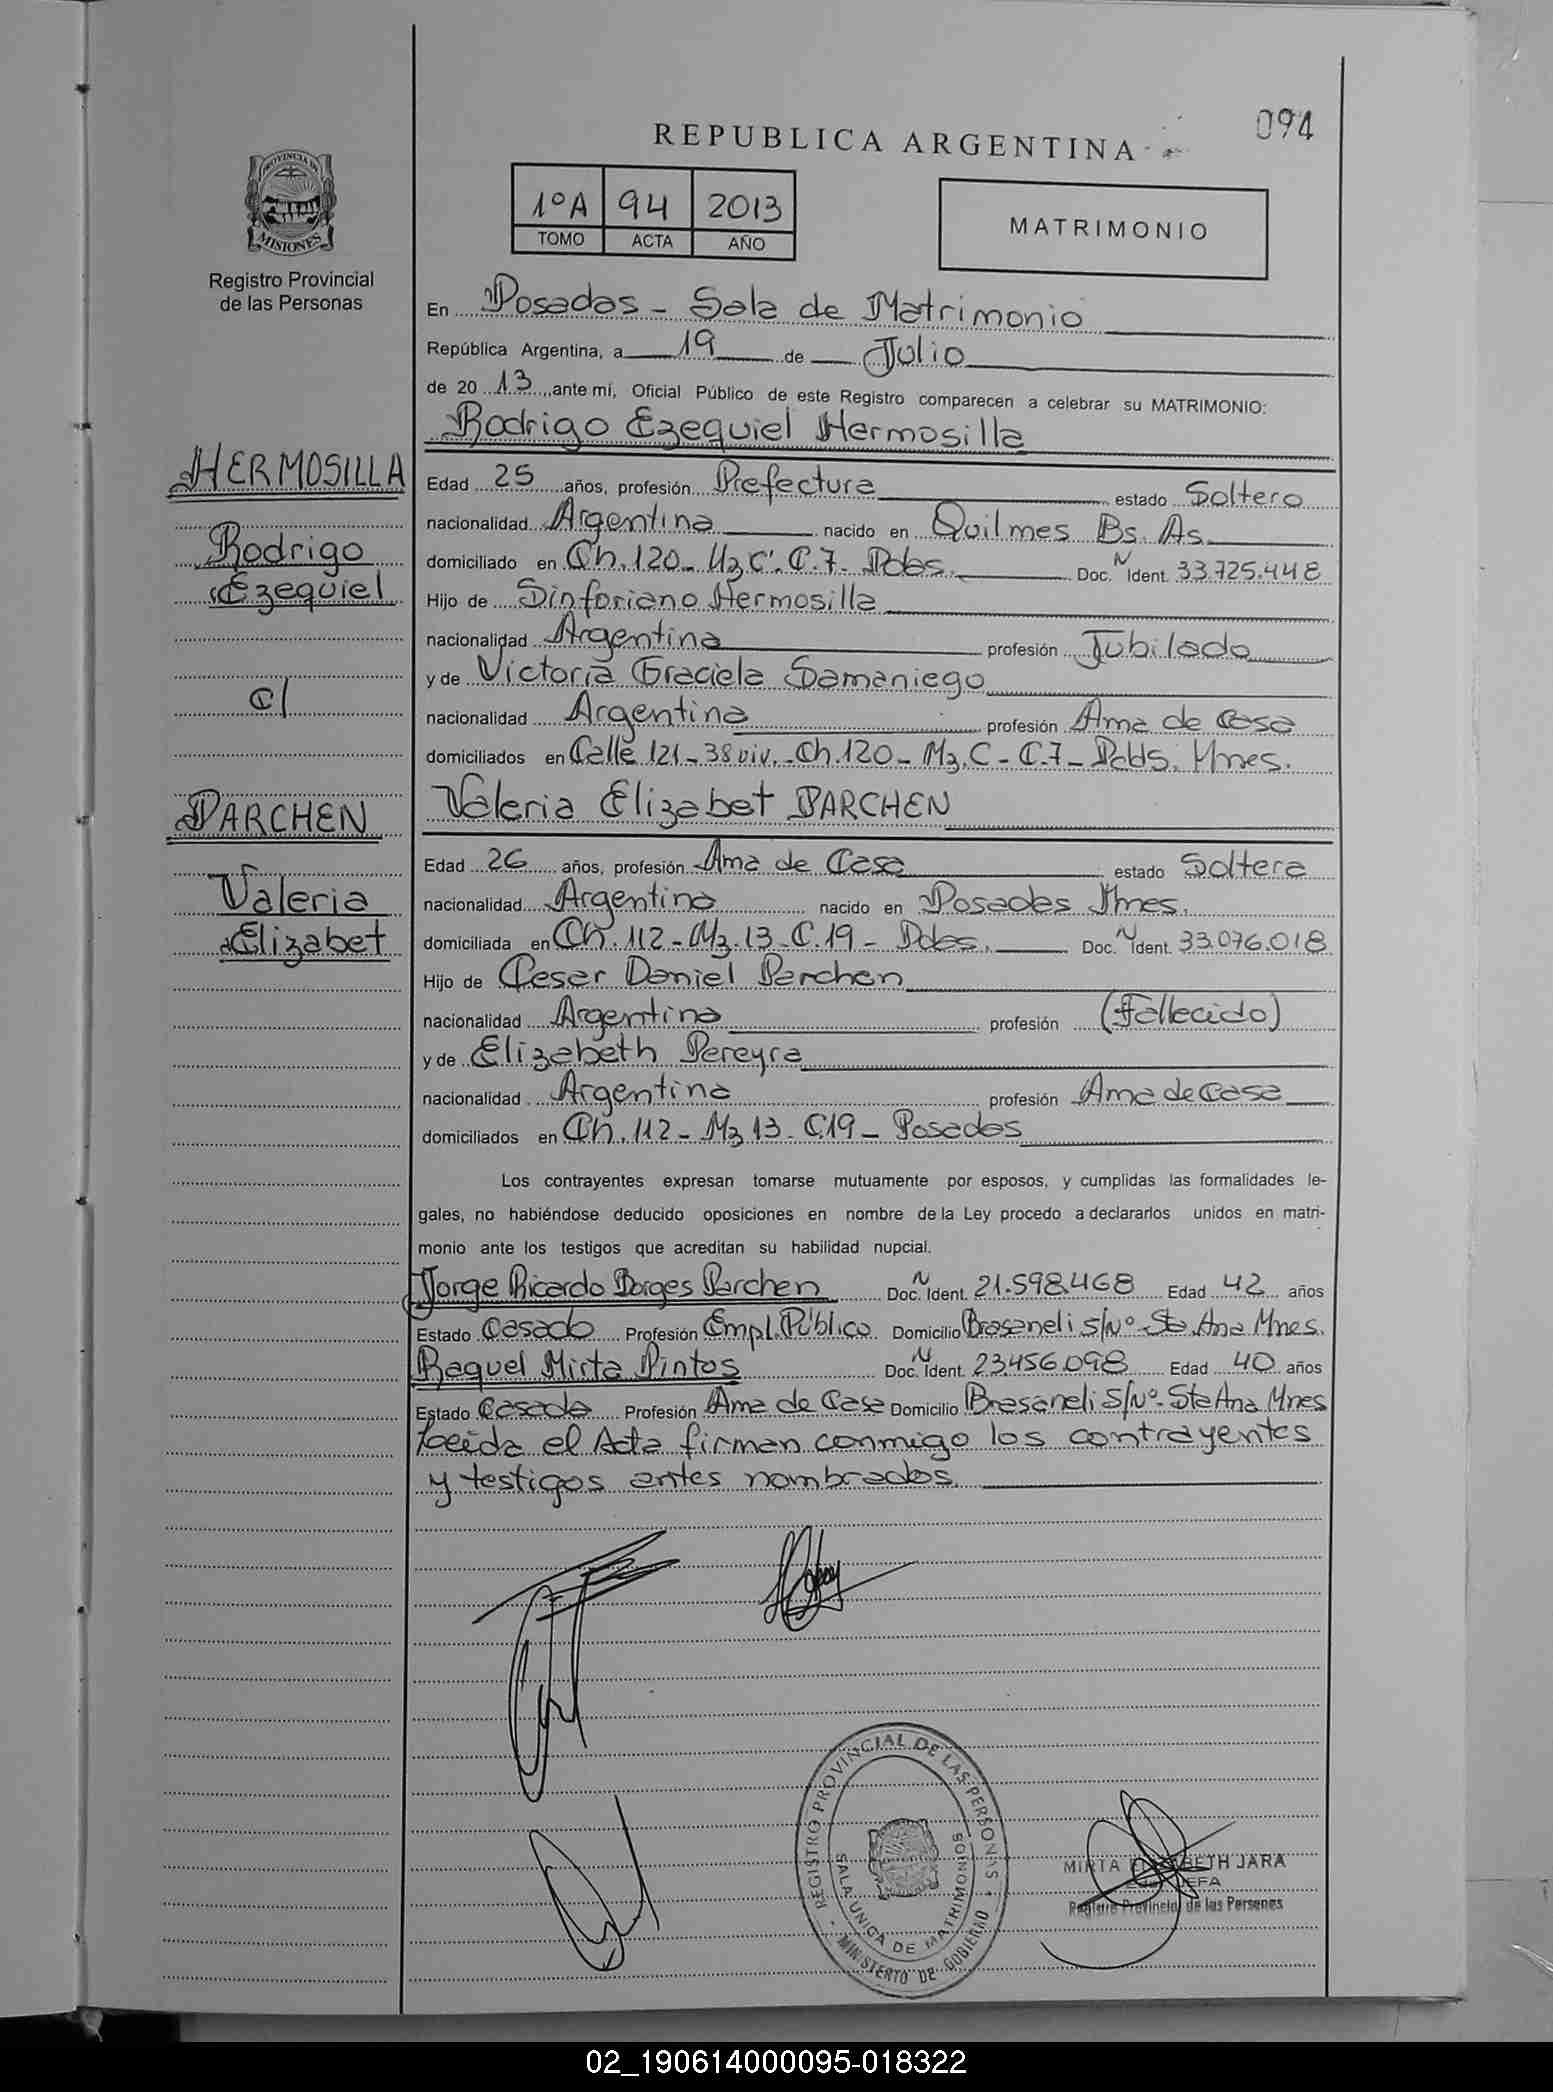 094
REPUBLICA ARGENTINA
PROVINCIA DE
MISIONES
Registro Provincial
de las Personas
1ºA 94 2013
TOMO ACTA AÑO
MATRIMONIO
En Posadas - Sala de Matrimonio
República Argentina, a 19 de Julio
de 20 13 ante mí, Oficial Público de este Registro comparecen a celebrar su MATRIMONIO:
Rodrigo Ezequiel Hermosilla
HERMOSILLA
Rodrigo
Ezequiel
c/
PARCHEN
Valeria
Elizabet
Edad 25 años, profesión Prefectura estado Soltero
nacionalidad Argentina nacido en Quilmes Bs. As.
domiciliado en Ch. 120 - Mz C. C. 7 - Pdas. Doc. N Ident. 33.725.448
Hijo de Sinforiano Hermosilla
nacionalidad Argentina profesión Jubilado
y de Victoria Graciela Samaniego
nacionalidad Argentina profesión Ama de Casa
domiciliados en Calle 121 - 38 viv. - Ch. 120 - Mz. C - C. 7 - Pdas. Mnes.
Valeria Elizabet PARCHEN
Edad 26 años, profesión Ama de Casa estado Soltera
nacionalidad Argentina nacido en Posadas Mnes.
domiciliada en Ch. 112 - Mz. 13 - C. 19 - Pdas. Doc. N Ident. 33.076.018
Hijo de Cesar Daniel Parchen
nacionalidad Argentina profesión (Fallecido)
y de Elizabeth Pereyra
nacionalidad Argentina profesión Ama de Casa
domiciliados en Ch. 112 - Mz 13 - C.19 - Posadas
Los contrayentes expresan tomarse mutuamente por esposos, y cumplidas las formalidades le-
gales, no habiéndose deducido oposiciones en nombre de la Ley procedo a declararlos unidos en matri-
monio ante los testigos que acreditan su habilidad nupcial.
Jorge Ricardo Borges Parchen Doc. N Ident. 21.598.468 Edad 42 años
Estado Casado Profesión Empl. Público Domicilio Brasaneli s/Nº Sta. Ana Mnes.
Raquel Mirta Pintos Doc. N Ident. 23.456.098 Edad 40 años
Estado Casada Profesión Ama de Casa Domicilio Brasaneli S/Nº - Sta Ana Mnes
Leída el Acta firman conmigo los contrayentes
y testigos antes nombrados.
REGISTRO PROVINCIAL DE LAS PERSONAS
SALA UNICA DE MATRIMONIOS
MINISTERIO DE GOBIERNO
MIRTA ELIZABETH JARA
JEFA
Registro Provincial de las Personas
02_190614000095-018322